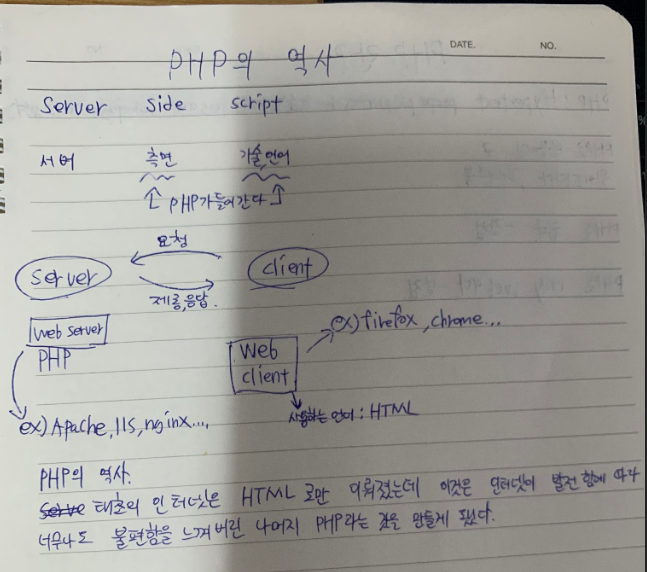 DATE. NO.
PHP의 역사
Server side script
서버 측면 기술,언어
PHP가들어간다
요청
Server client
제공,응답.
Web server
PHP
ex) firefox, chrome...
Web
client
사용하는 언어 : HTML
ex) Apache, IIS, nginx...,
PHP의 역사.
태초의 인터넷은 HTML로만 이뤄졌는데 이것은 인터넷이 발전함에 따라
너무나도 불편함을 느껴버린 나머지 PHP라는 것을 만들게 됐다.